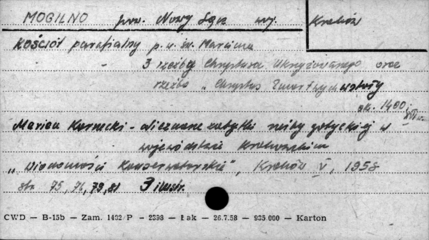 MOGILNO pow. Nowy Sącz woj. Kraków
KOŚCIÓŁ parafialny p.w. św. Marcina
3 rzeźby Chrystusa Ukrzyżowanego oraz
rzeźba „Chrystus Zmartwychwstały
ok. 1400
Marian Kornecki - Nieznane zabytki rzeźby gotyckiej w
województwie krakowskim
„Wiadomości Konserwatorskie", Kraków V, 1958
str. 75, 76, 79, 81 3 ilustr.
CWD — B-15b — Zam. 1422/P — 2398 — Łak — 26.7.58 — 935.000 — Karton